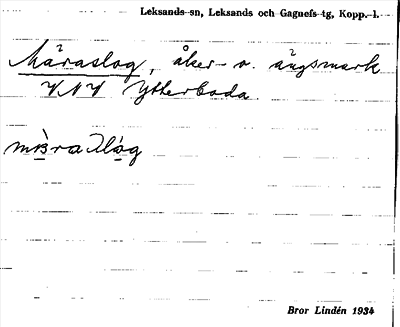 Leksands sn, Leksands och Gagnefs tg, Kopp. l.
Måraslog, åker- o. ängsmark
VNV Ytterboda.
Bror Lindén 1934